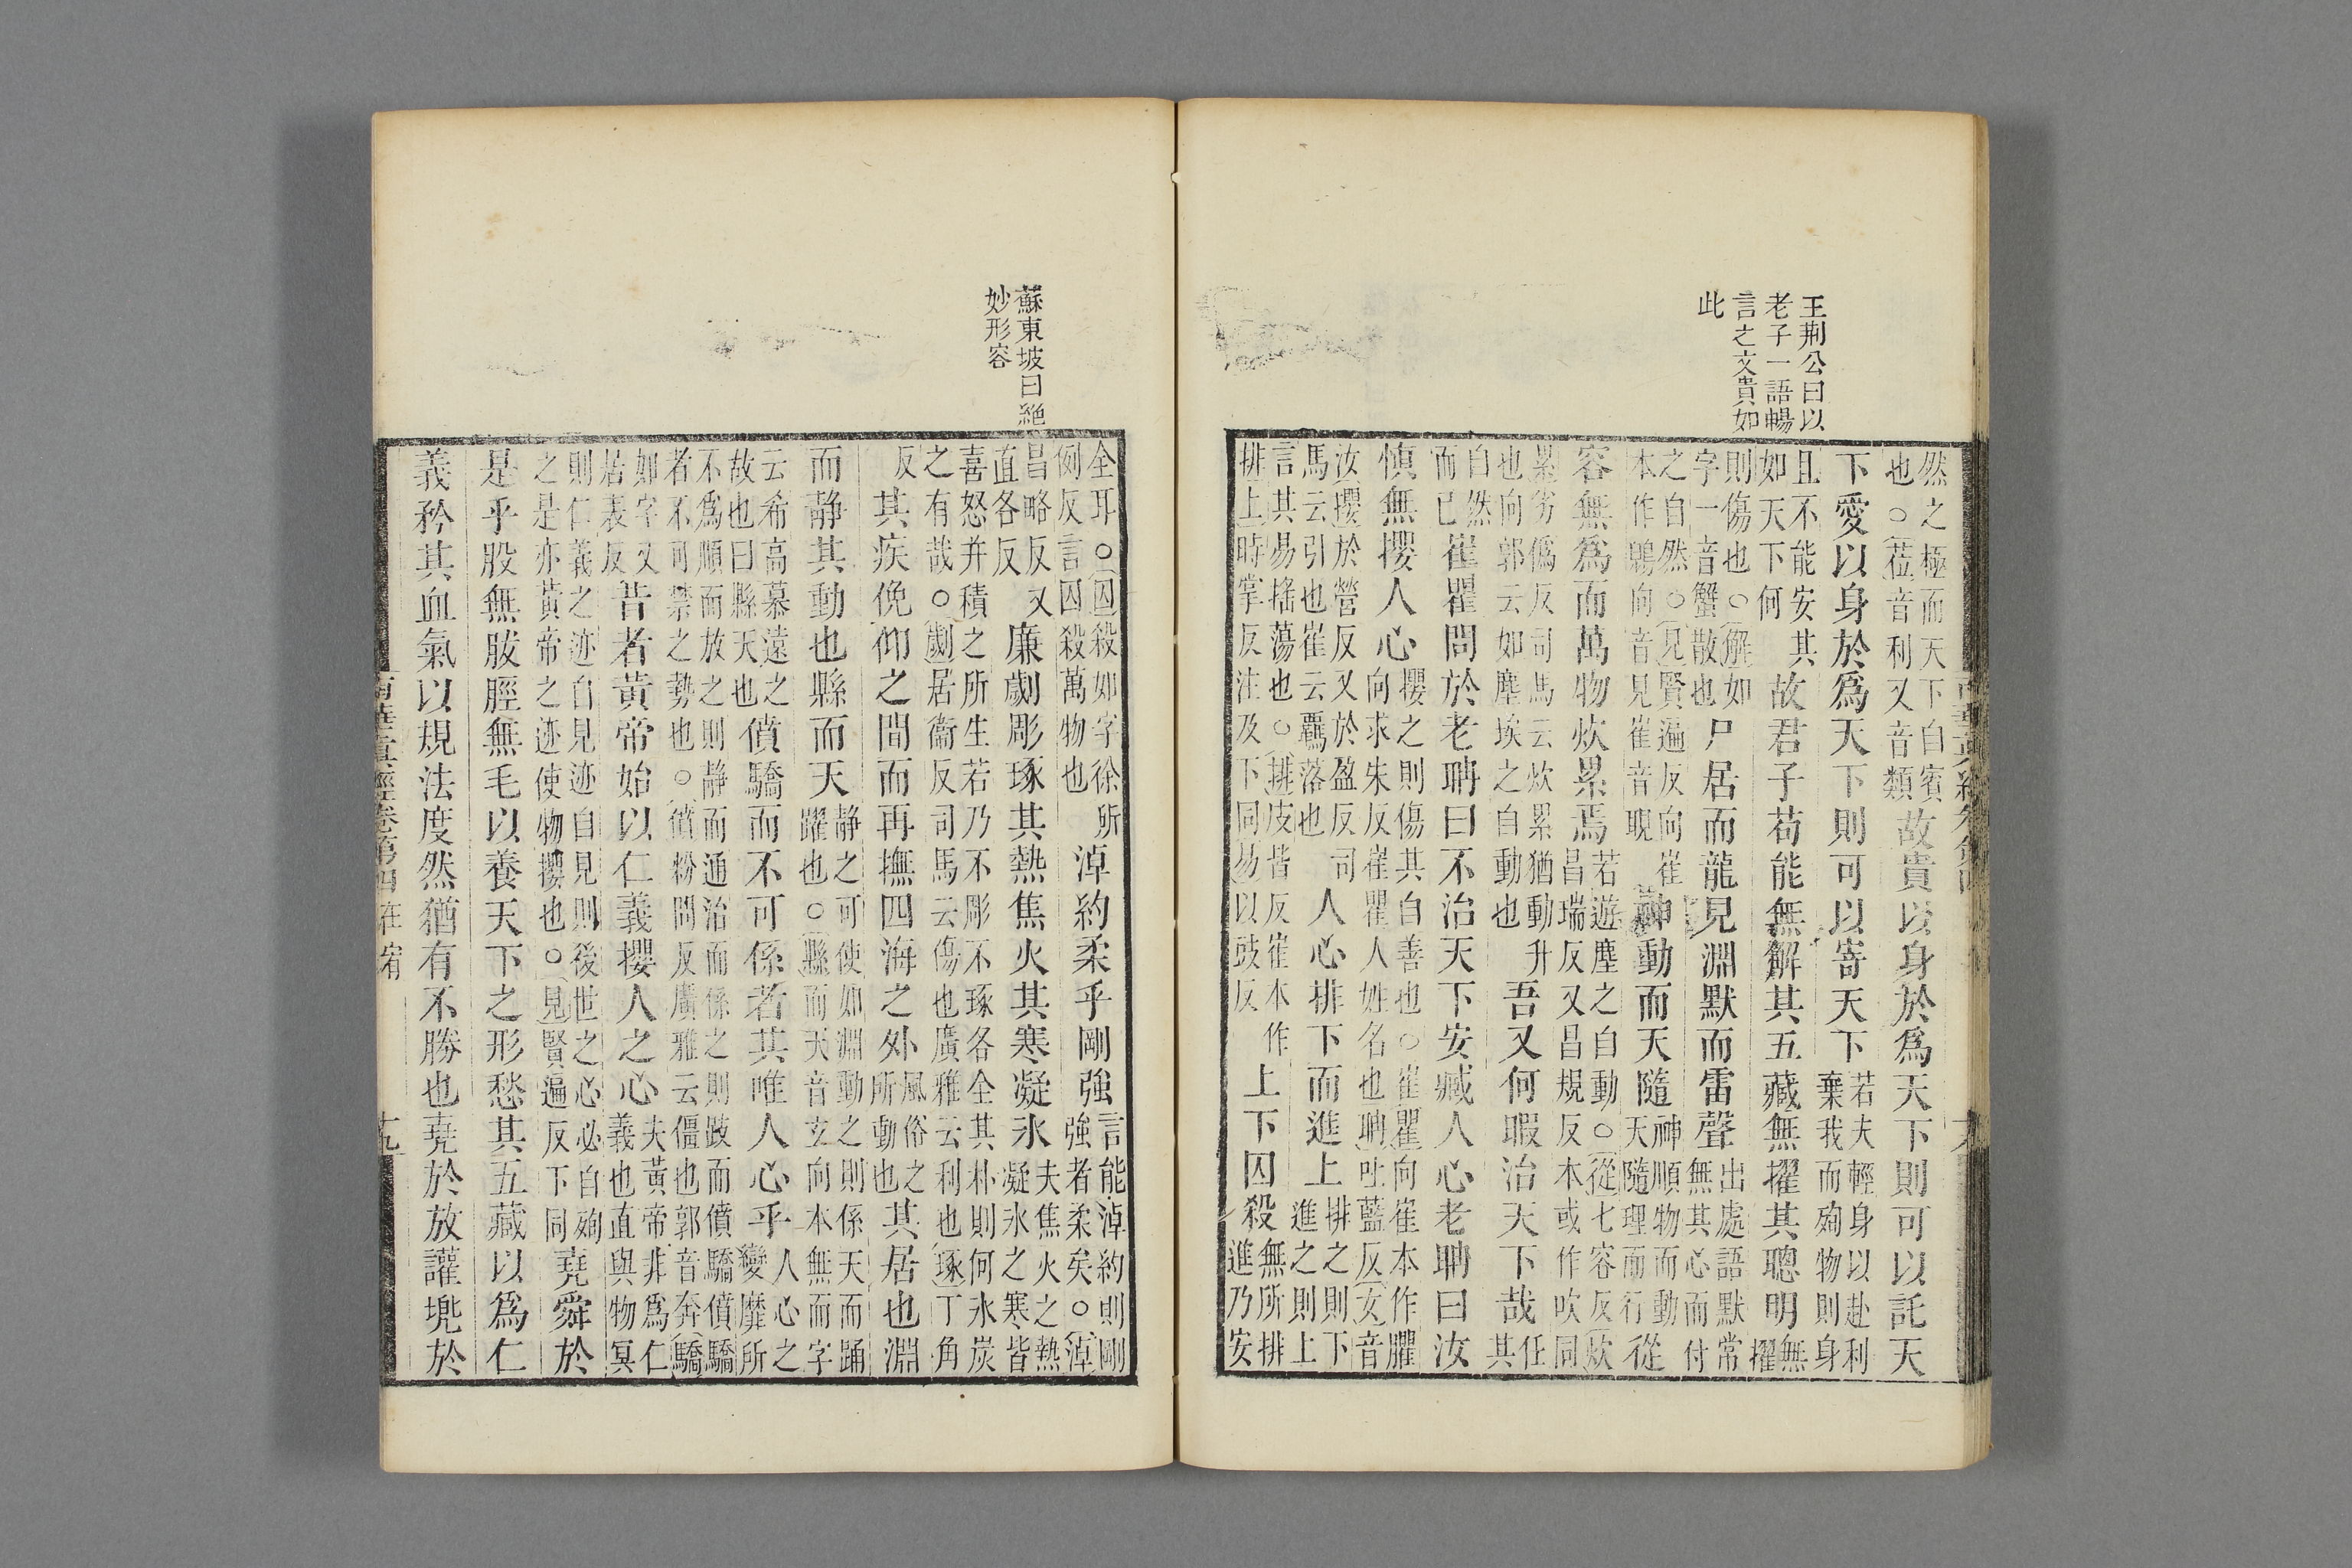 王荆公曰以
老子一語暢
言之文貴如
此
然之極而天下自賓
也○莅音利又音類
故貴以身於爲天下則可以託天
下愛以身於爲天下則可以寄天下
若夫輕身以赴利
棄我而殉物則身
且不能安其
如天下何
故君子苟能無解其五藏無擢其聰明
無
擢
則傷也○解如
字一音蟹散也
尸居而龍見淵默而雷聲
出處語默常
無其心而付
之自然○見賢遍反向崔
本作鶂向音見崔音睍
神動而天隨
神順物而動
天隨理而行
從
容無爲而萬物炊累焉
若遊塵之自動○從七容反炊
昌瑞反又昌規反本或作吹同
累劣僞反司馬云炊累猶動升
也向郭云如塵埃之自動也
吾又何暇治天下哉
任
其
自然
而已
崔瞿問於老聃曰不治天下安臧人心老聃曰汝
慎無攖人心
攖之則傷其自善也○崔瞿向崔本作臞
向求朱反崔瞿人姓名也聃吐藍反女音
汝攖於營反又於盈反司
馬云引也崔云羈落也
人心排下而進上
排之則下
進之則上
言其易搖蕩也○排皮皆反崔本作
排上時掌反注及下同易以豉反
上下囚殺
無所排
進乃安
蘇東坡曰絶
妙形容
全耳○囚殺如字徐所
例反言囚殺萬物也
淖約柔乎剛強
言能淖約則剛
強者柔矣○淖
昌略反又
直各反
廉劌彫琢其熱焦火其寒凝氷
夫焦火之熱
凝氷之寒皆
喜怒并積之所生若乃不彫不琢各全其朴則何氷炭
之有哉○劌居衞反司馬云傷也廣雅云利也琢丁角
反
其疾俛仰之間而再撫四海之外
風俗之
所動也
其居也淵
而静其動也縣而天
静之可使如淵動之則係天而踊
躍也○縣而天音玄向本無而字
云希高慕遠之
故也曰縣天也
僨驕而不可係者其唯人心乎
人心之
變靡所
不爲順而放之則静而通治而係之則跂而僨驕僨驕
者不可禁之勢也○僨粉問反廣雅云僵也郭音奔驕
如字又
居表反
昔者黄帝始以仁義攖人之心
夫黄帝非爲仁
義也直與物冥
則仁義之迹自見迹自見則後世之心必自殉
之是亦黄帝之迹使物攖也○見賢遍反下同
堯舜於
是乎股無胈脛無毛以養天下之形愁其五藏以爲仁
義矜其血氣以規法度然猶有不勝也堯於放讙兜於
南華真經卷第四 在宥 十九